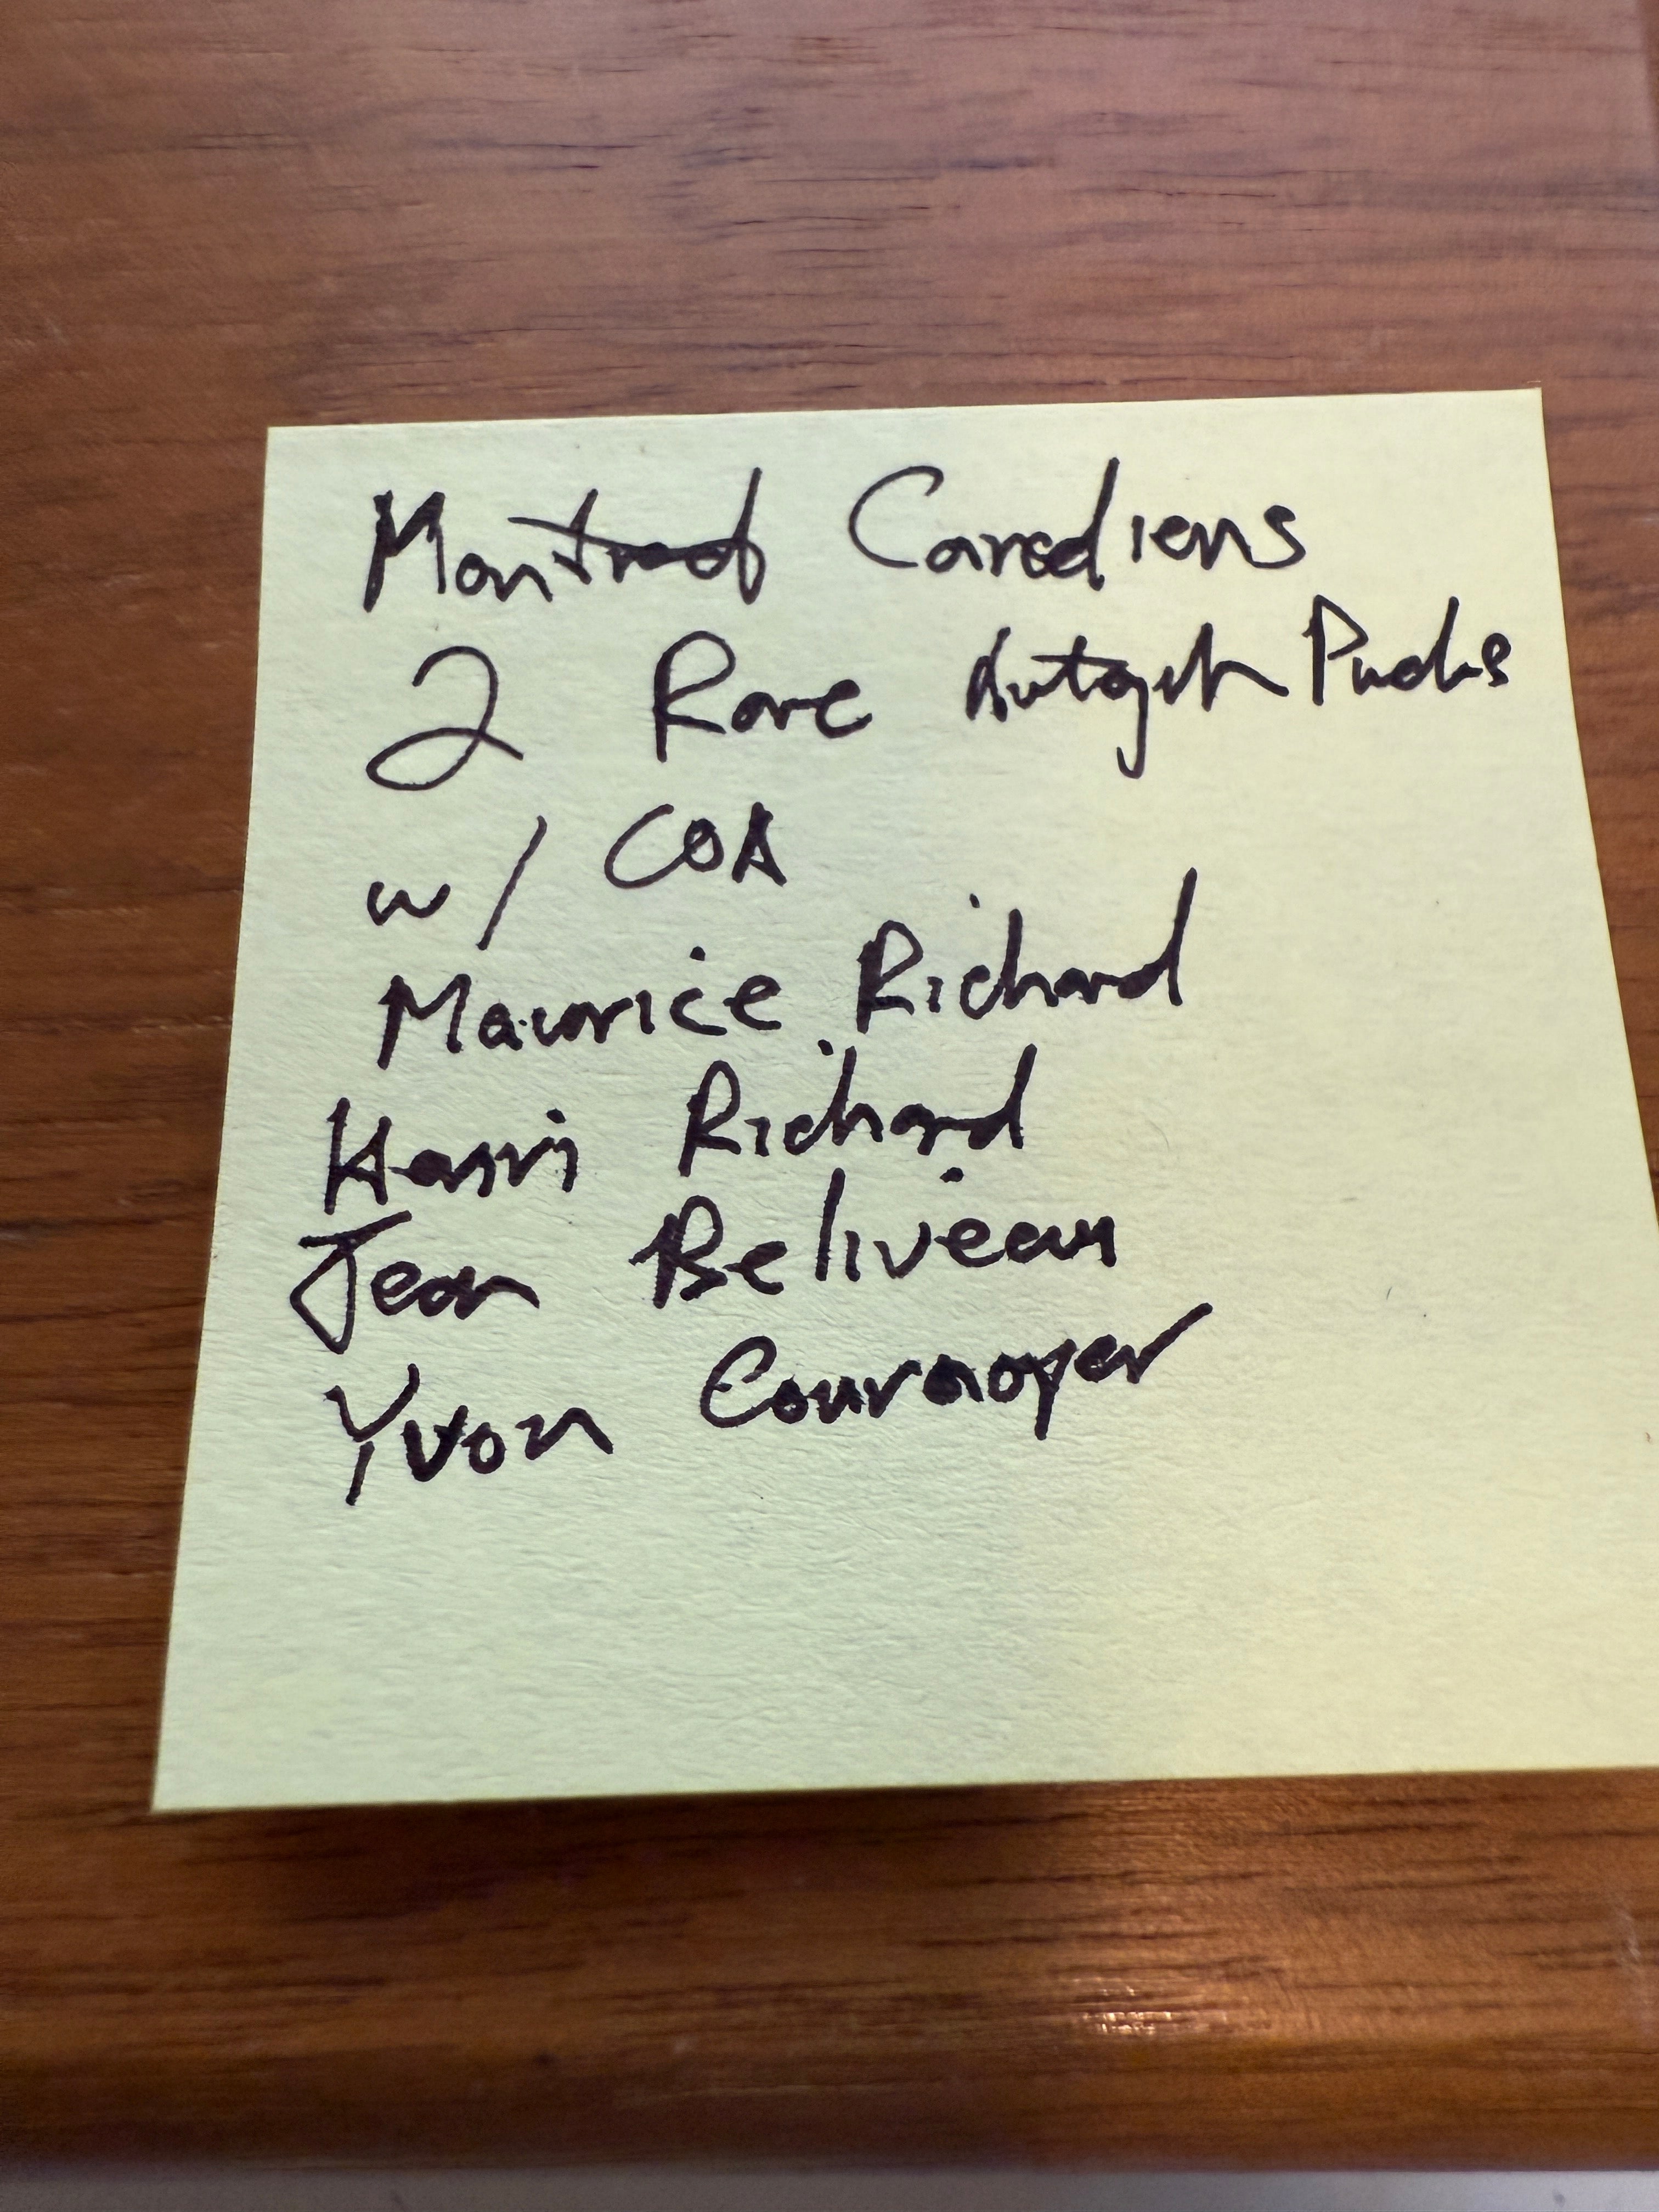 Montreal Canadiens
2 Rare Autogrh Pucks
w/ COA
Maurice Richard
Henri Richard
Jean Beliveau
Yvon Cournoyer